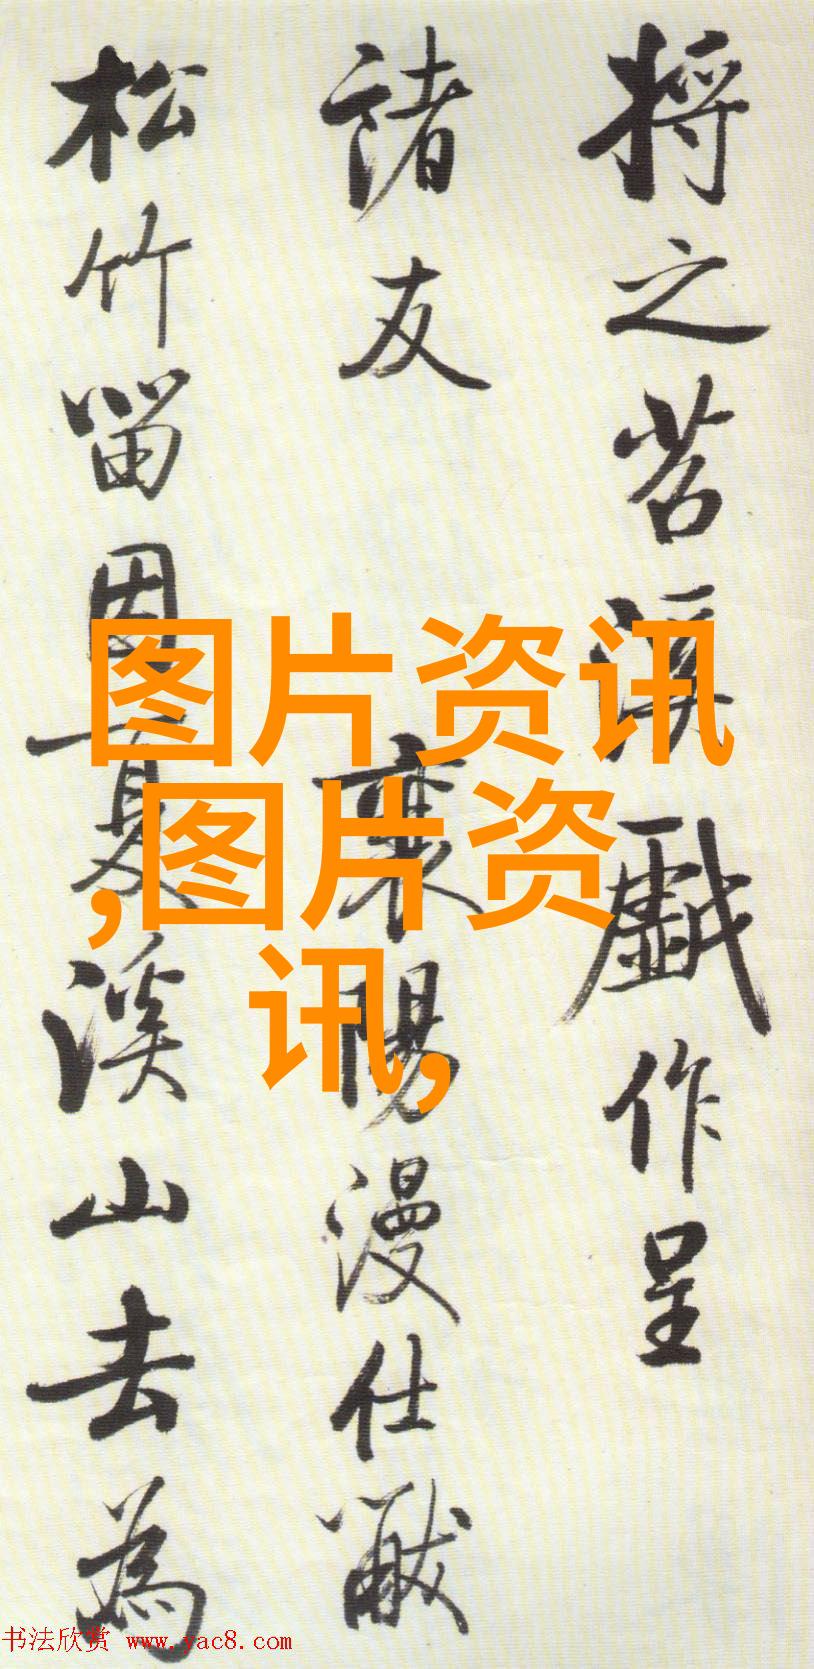 将之苕溪戯作呈
諸友
襄陽漫仕黻
松竹留因夏溪山去為
图片资讯
,图片资
讯,
书法欣赏 www.yac8.com